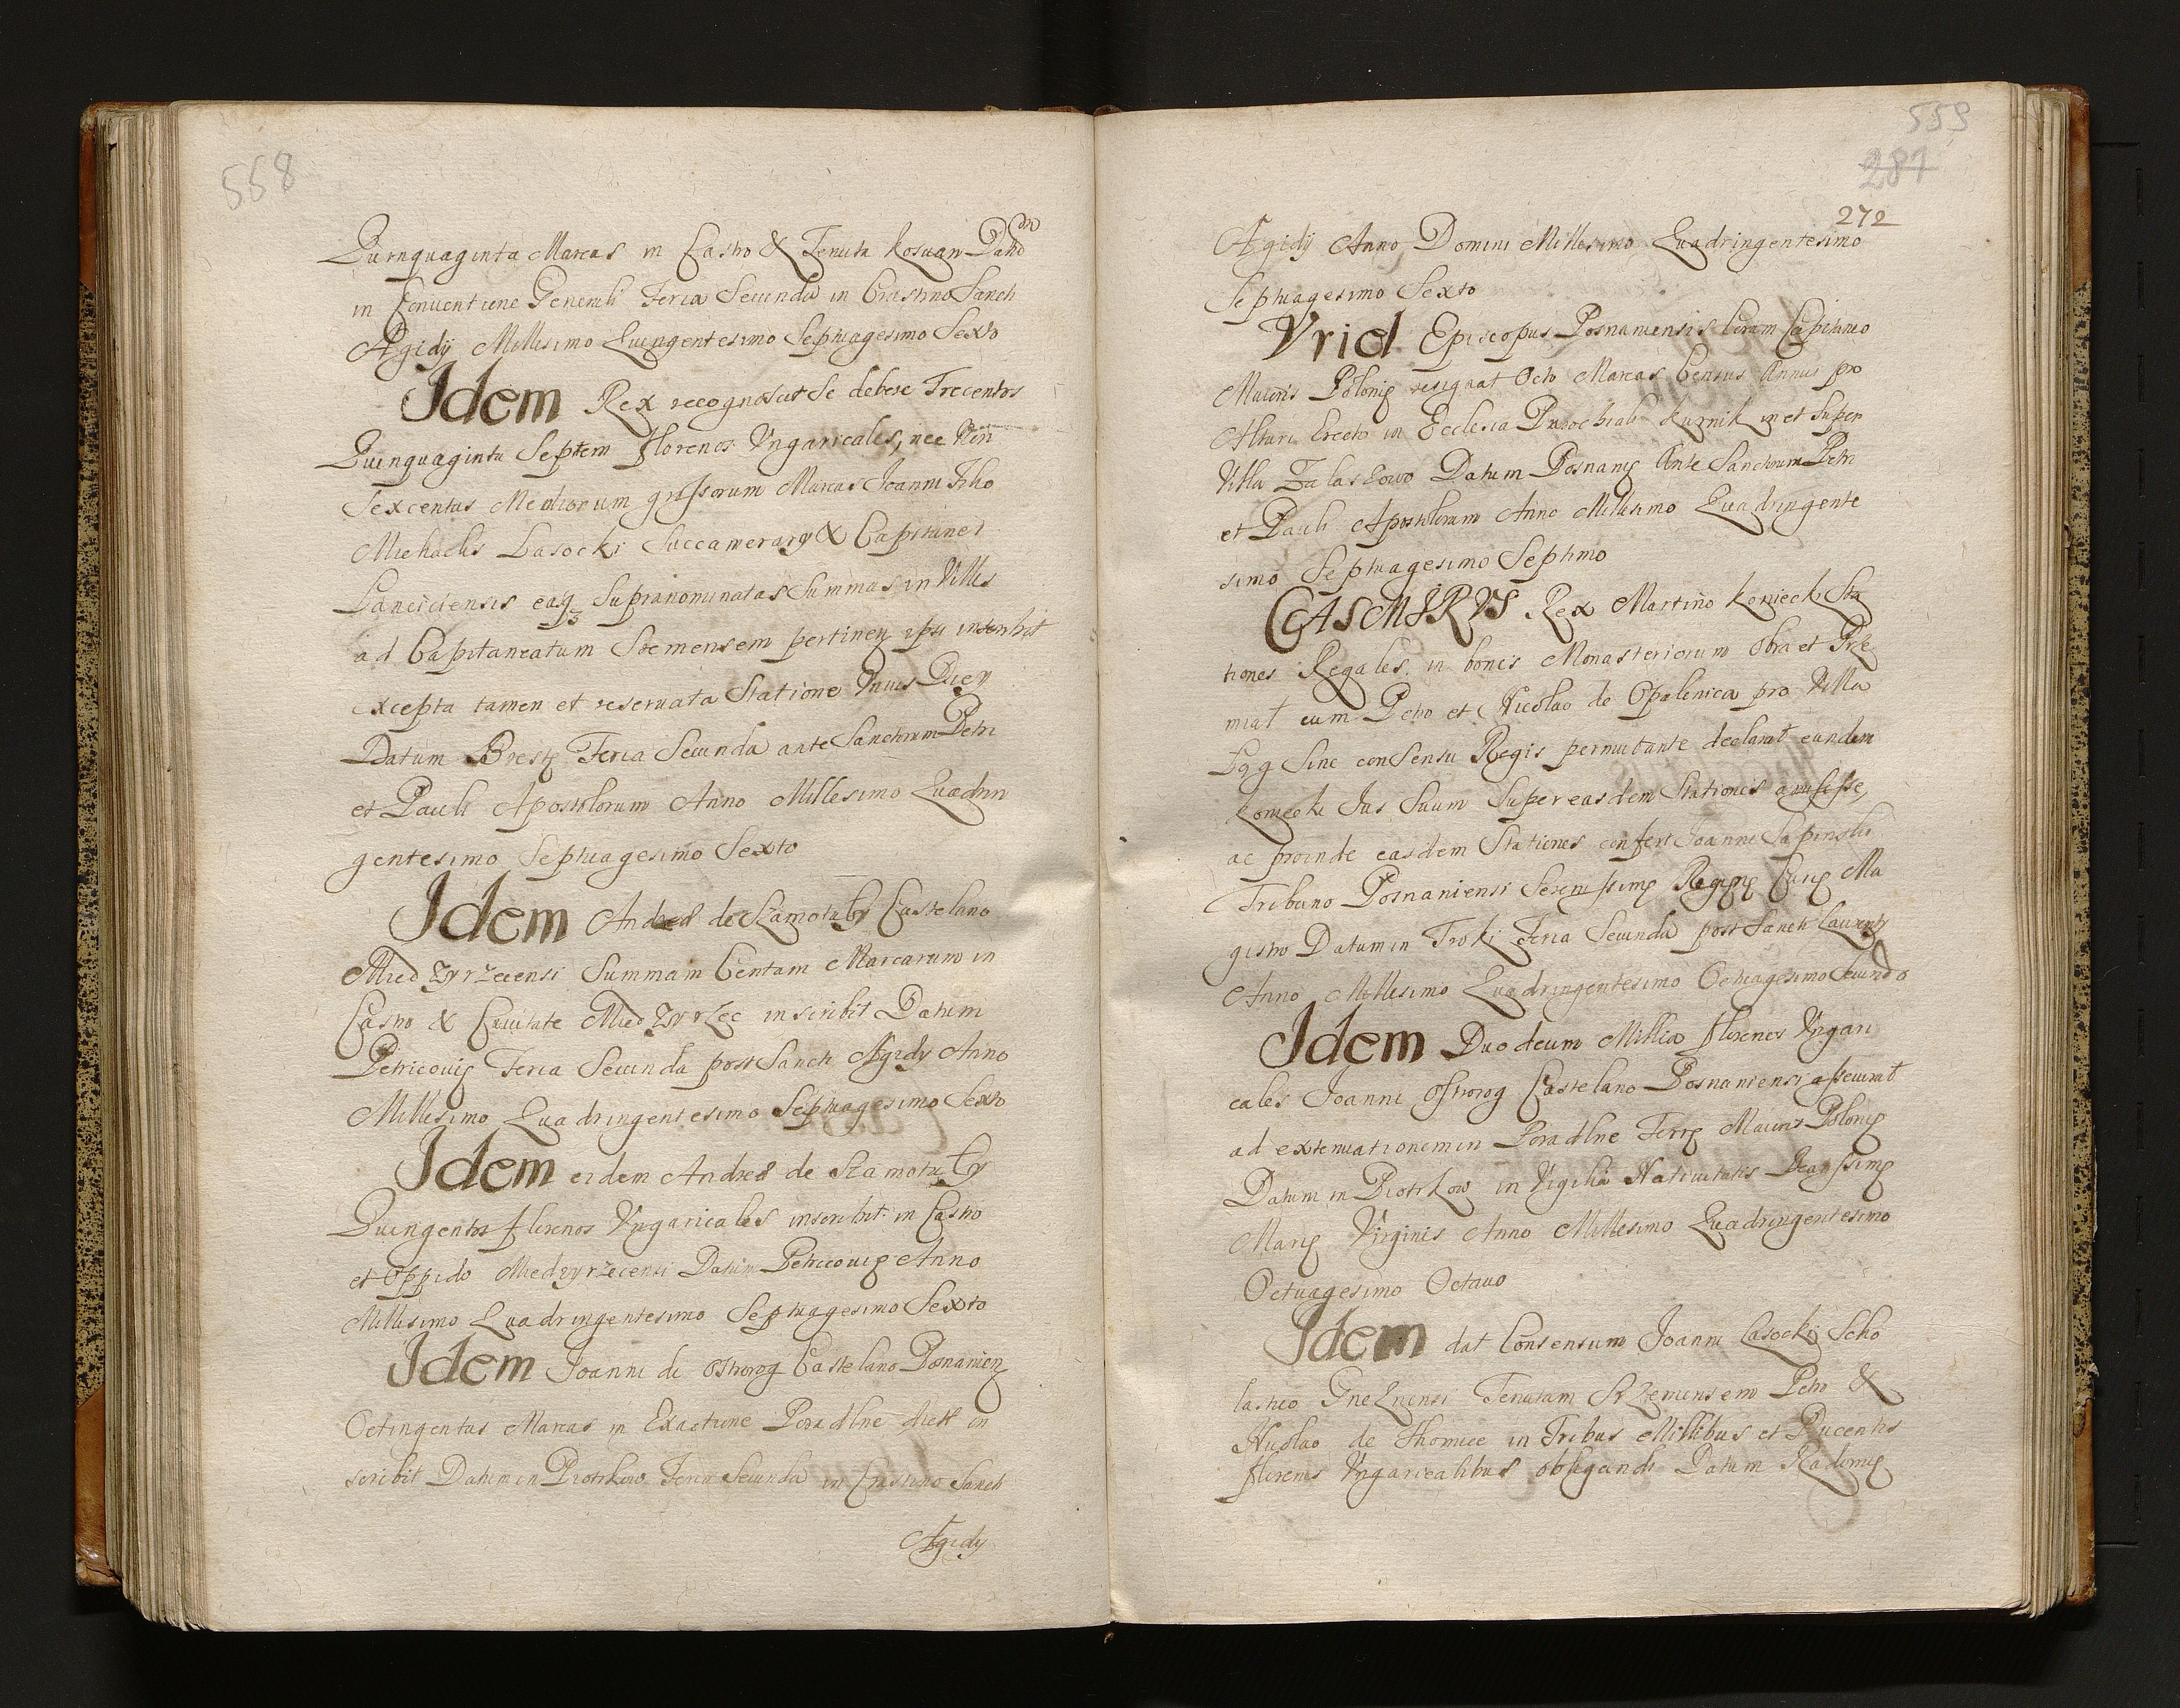 558
Quinquaginta Marcas in Castro & Tenuta Kosvan Datũ
in Conventione Generali Feria Secunda in Crastino Sancti
Ægidÿ Millesimo Quingentesimo Septuagesimo Sexto
Idem Rex recognoscit se debere Trecentos
Quinquaginta Septem florenos Ungaricales, nec non
Sexcentas Mediorum grossorum Marcas Joanni filio
Michaelis Lasocki Succamerarÿ & Capitanei
Lanciciensis easq3 Supranominatas Summas in Villis
ad Capitaneatum Sremensem pertineñ ipsi inscribit
excepta tamen et reservata Statione Unius Diei
Datum Brestę Feria Secunda ante Sanctorum Petri
et Pauli Apostolorum Anno Millesimo Quadrin
gentesimo Septuagesimo Sexto
Idem Andreę de Szamotuly Castelano
Miedzyrzecensi Summam Centam Marcarum in
Castro & Civitate Miedzyrzec inscribit Datum
Petricovię Feria Secunda post Sancti Ægidÿ Anno
Millesimo Quadringentesimo Septuagesimo Sexto
Idem eidem Andreę de Szamotuly
Quingentos florenos Ungaricales inscribit in Castro
et Oppido Miedzyrzecensi Datum Petricovię Anno
Millesimo Quadringentesimo Septuagesimo Sexto
Idem Joanni de Ostrorog Castelano Posnanieñ
Octingentas Marcas in Exactione Poradlne dict in
scribit Datum in Piotrkow Feria Secunda in Crastino Sancti
Ægidÿ
559
281
272
Ægidÿ Anno Domini Millesimo Quadringentesimo
Septuagesimo Sexto
Uriel Episcopus Posnaniensis Coram Capitaneo
Maioris Polonię resignat Octo Marcas Census Annui pro
Altari Erecto in Ecclesia Parochiali Kurnik in et super
Villa Zalaskowo Datum Posnanię Ante Sanctorum Petri
et Pauli Apostolorum Anno Millesimo Quadringente
simo Septuagesimo Septimo
CASMIRUS Rex Martino Konieck Sta
tiones Regales in bonis Monasteriorum Obra et Prze
miat cum Petro et Nicolao de Opalenica pro Villa
Sine consensu Regis permutante declarat eundem
Konieck Jus Suum Super easdem Stationes amisisse,
ac proinde easdem Stationes confert Joanni Sapinski
Tribuno Posnaniensi Serenissimę Reginę Curię Ma
gistro Datum in Troki Feria Secunda post Sancti Laurentÿ
Anno Millesimo Quadringentesimo Octuagesimo Secundo
Idem Duodecim Millia florenos Ungari
cales Joanni Ostrorog Castelano Posnaniensi assecurat
ad extenuationem in Poradlne Terrę Maioris Polonię
Datum in Piotrkow in Vigilia Nativitatis Beatissimę
Marię Virginis Anno Millesimo Quadringentesimo
Octuagesimo Octavo
Idem dat Consensum Joanni Lasocki Scho
lastico Gneznensi Tenutam Srzemensem Petro &
Nicolao de Thomice in Tribus Millibus et Ducentis
florenis Ungaricalibus obligandi Datum Radomię